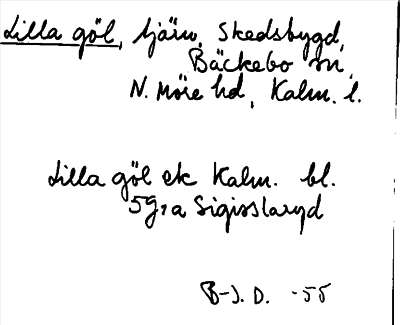 Lilla göl, tjärn, Skedsbygd,
Bäckebo sn,
N. Möre hd, Kalm. l.
Lilla göl ek Kalm. bl.
5g, a Sigisslaryd
B-J. D. -55